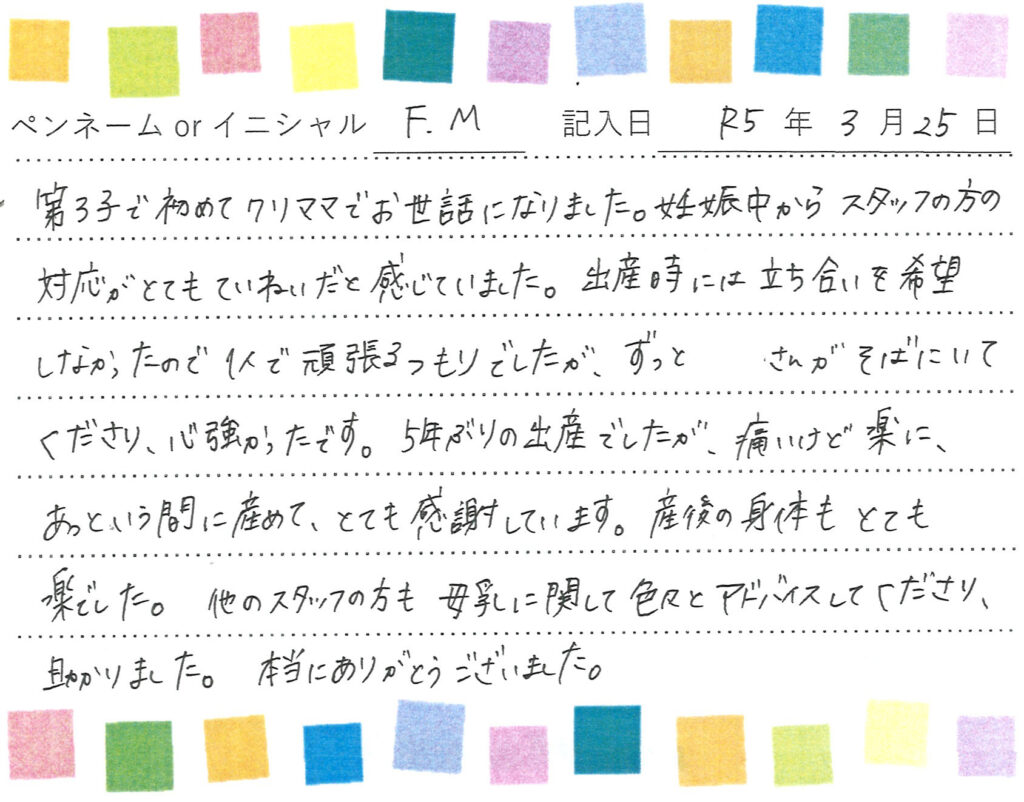 ペンネーム or イニシャル F. M 記入日 R5 年 3 月 25 日
第3子で初めてクリママでお世話になりました。妊娠中からスタッフの方の
対応がとてもていねいだと感じていました。出産時には立ち合いを希望
しなかったので1人で頑張るつもりでしたが、ずっと さんがそばにいて
くださり、心強かったです。5年ぶりの出産でしたが、痛いけど楽に、
あっという間に産めて、とても感謝しています。産後の身体もとても
楽でした。他のスタッフの方も母乳に関して色々とアドバイスしてくださり、
助かりました。本当にありがとうございました。